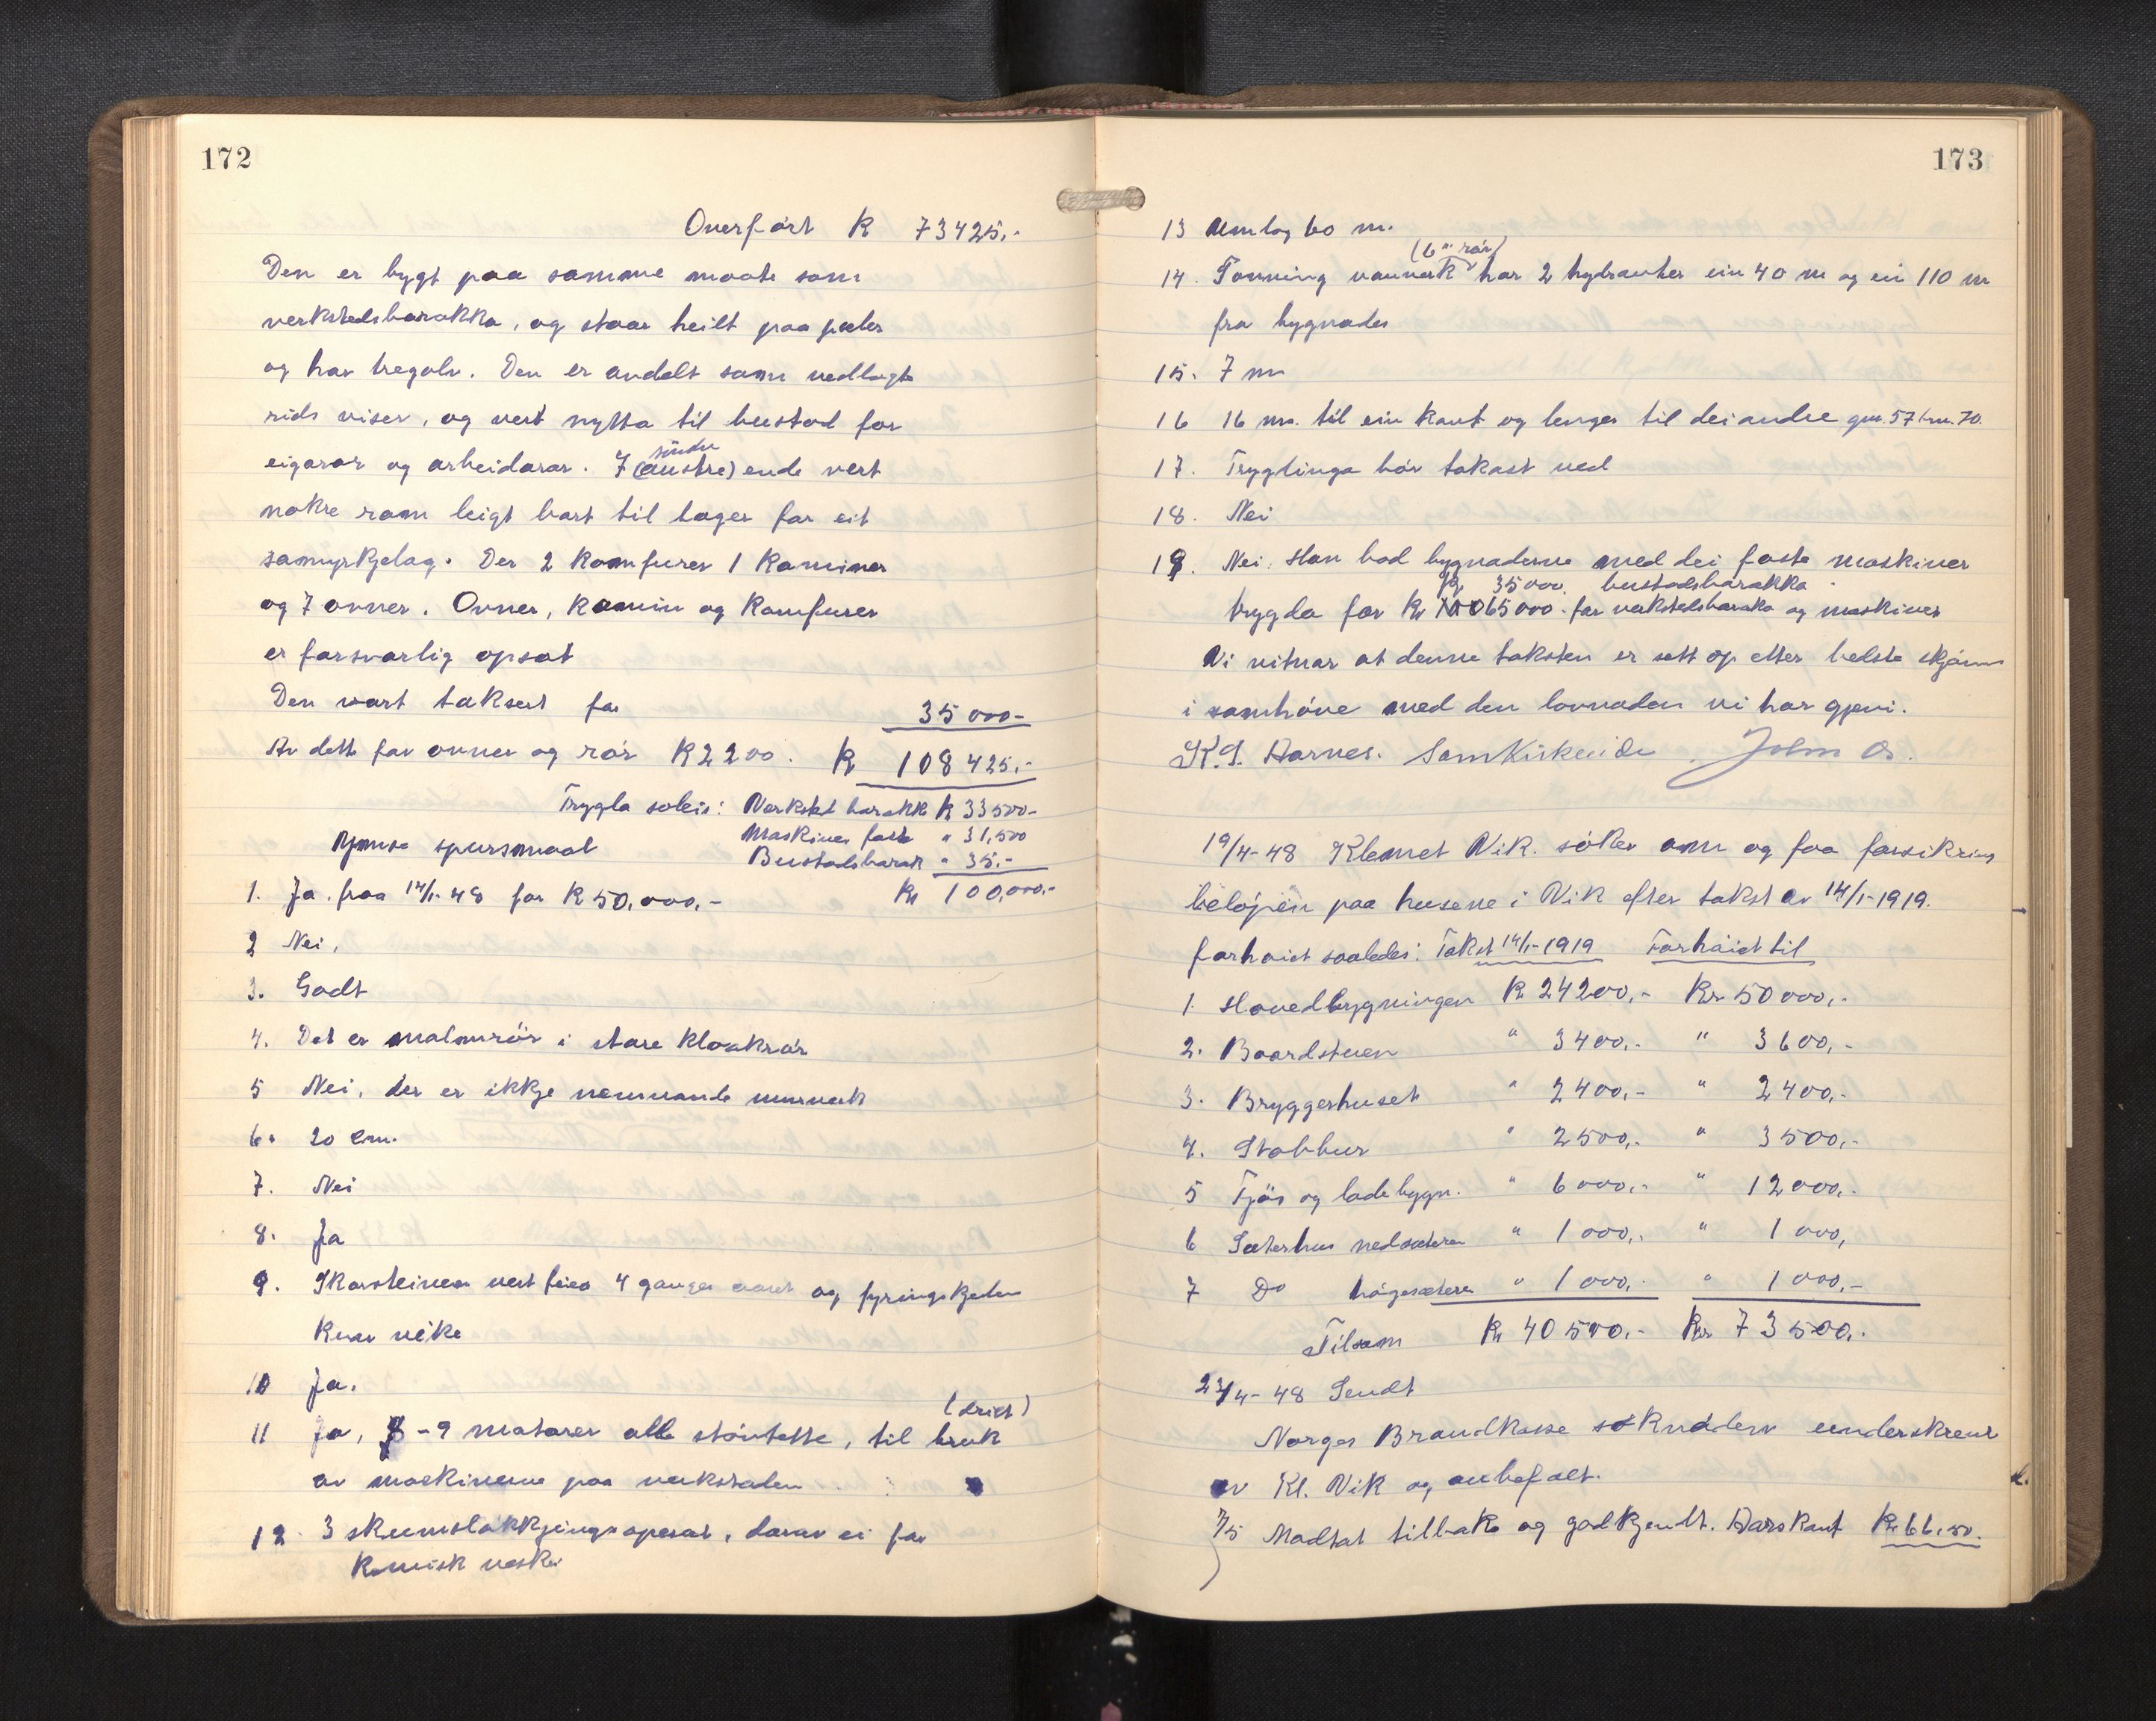 172
Overfört K 73425,-
Den er bygt paa samme maate som
verkstedsbarakka, og staar heilt paa pæler
og har tregolv. Den er avdelt som vedlagte
rids viser, og vert nytta til bustad for
eigarar og arbeidarar. I (söndre
austre) ende vert
nokre rom leigt bort til lager for eit
samyrkjelag. Der 2 komfurer 1 kaminer
og 7 ovner. Ovner, kamin og komfurer
er forsvarlig opsat
Den vart taksert for 35 000-
Av dette for ovner og rör K 2200. Kr 108 425,-
Trygla soleis: Verksted barakk K 33500-
Maskiner faste " 31,500
Ymse spursmaal
Bustadsbarak " 35.-
1. Ja. fraa 14/1-48 for K 50,000,- Kr 100,000,-
2 Nei,
3. Godt
4. Det er malmrör i store kloakrör
5 Nei, der er ikkje nemnande murverk
6. 20 cm.
7. Nei
8. Ja
9. Skorsteinen vert feiea 4 ganger aaret og fyringskjelen
kvar vike
10 Ja.
(drift)
11 Ja, 8-9 motorer alle stövtette, til bruk
av maskinerne paa verkstaden
12. 3 skumslökkjingsaperat, darav ei for
kemisk veske
173
13 Umlag 60 m.
(6" rör)
14. Tonning vannverk har 2 hydranter ein 40 m og ein 110 m
fra bygnaden
15. 7 m
16 16 m. til ein kant og lenger til dei andre gnr. 57 bnr. 70.
17. Tryglinga bör takast ved
18. Nei
19. Nei. Han bad bygnaderne med dei faste maskiner
Kr 35000. bustadsbarakka
trygda for Kr 65000. for verkstedsbaraka og maskiner
Vi vitnar at denne taksten er sett op etter beste skjönn
i samhöve med den lovnaden vi har gjevi.
K. J. Aarnes. Sam Kirkeide John Os.
19/4-48 Klemet Vik. söker om og faa forsikring
belöpen paa husene i Vik efter takst av 14/1-1919.
forhöiet saaledes: Takst 14/1-1919 Forhöiet til
1. Hovedbygningen K 24200,- Kr 50000,-
2. Boardstuen " 3400,- " 3600,-
3. Bryggerhuset " 2400,- " 2400,-
4. Stabbur " 2500,- " 3500,-
5 Fjös og ladebygn. " 6000,- " 12000,-
6 Sæterhus nedsætren " 1000,- " 1000,
7 Do högesætren " 1000,- " 1000,-
Tilsam Kr 40500,- Kr 73500,-
23/4-48 Sendt
Norges Brandkasse söknaden underskreve
av Kl. Vik og anbefalt.
7/5 Modtat tilbake og godkjendt. Aarskont Kr 66,50.